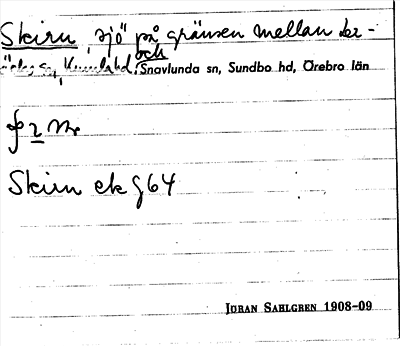 Skirn, sjö på gränsen mellan Ler-
bäcks sn, Kumla hd, och Snavlunda sn, Sundbo hd, Örebro län
Skirn ek § 64
JÖRAN SAHLGREN 1908-09